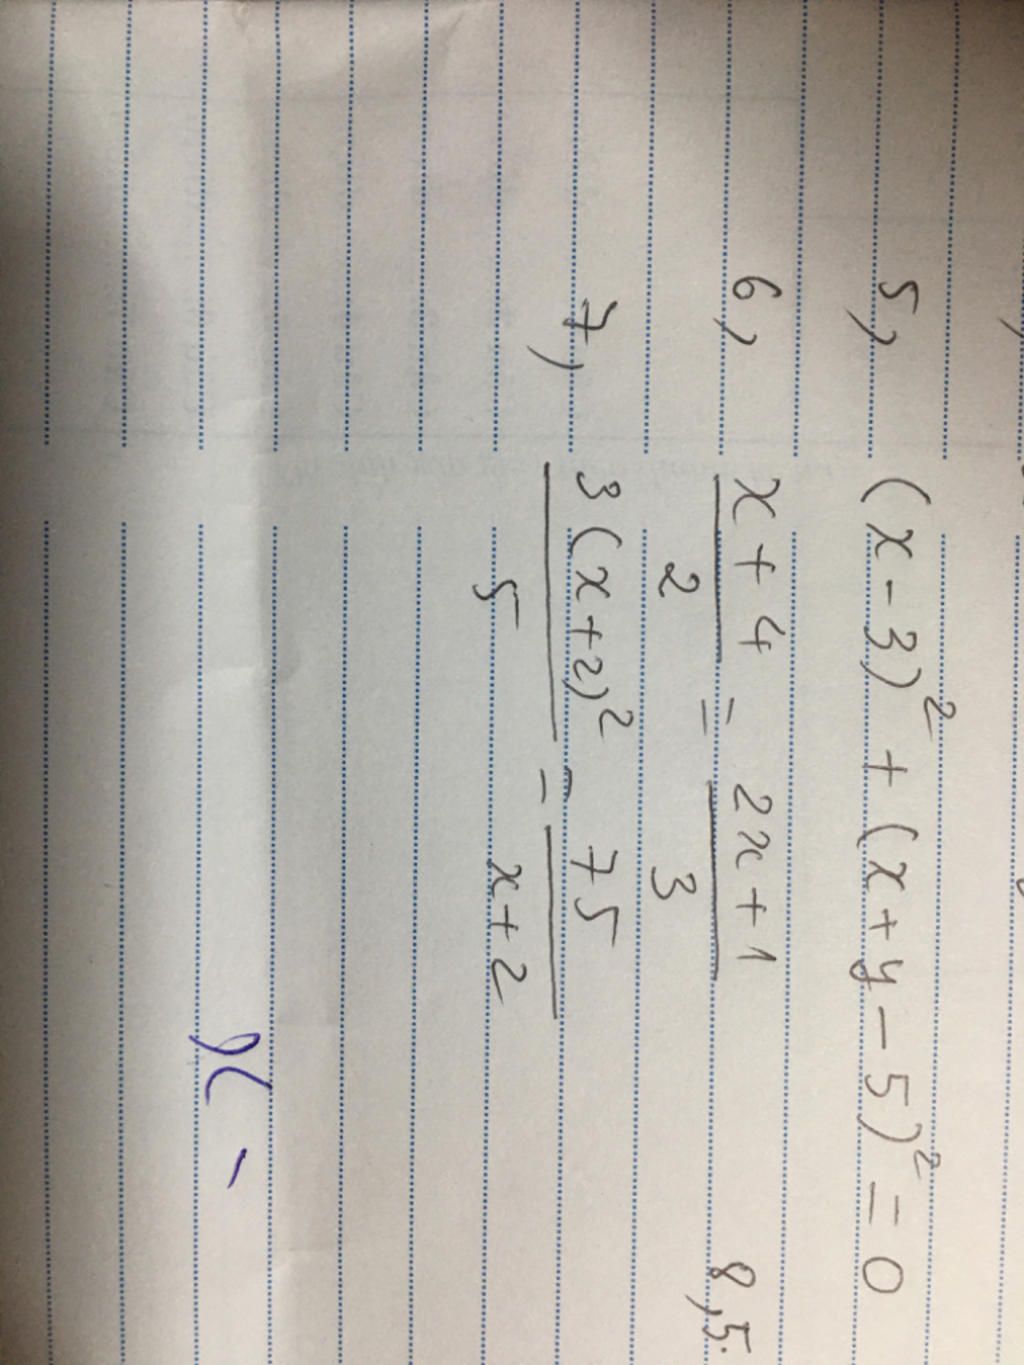 5, (x-3)² + (x+y-5)² = 0
6, \frac{x+4}{2} = \frac{2x+1}{3} 8,5
7, \frac{3(x+2)²}{5} = \frac{75}{x+2}
x -